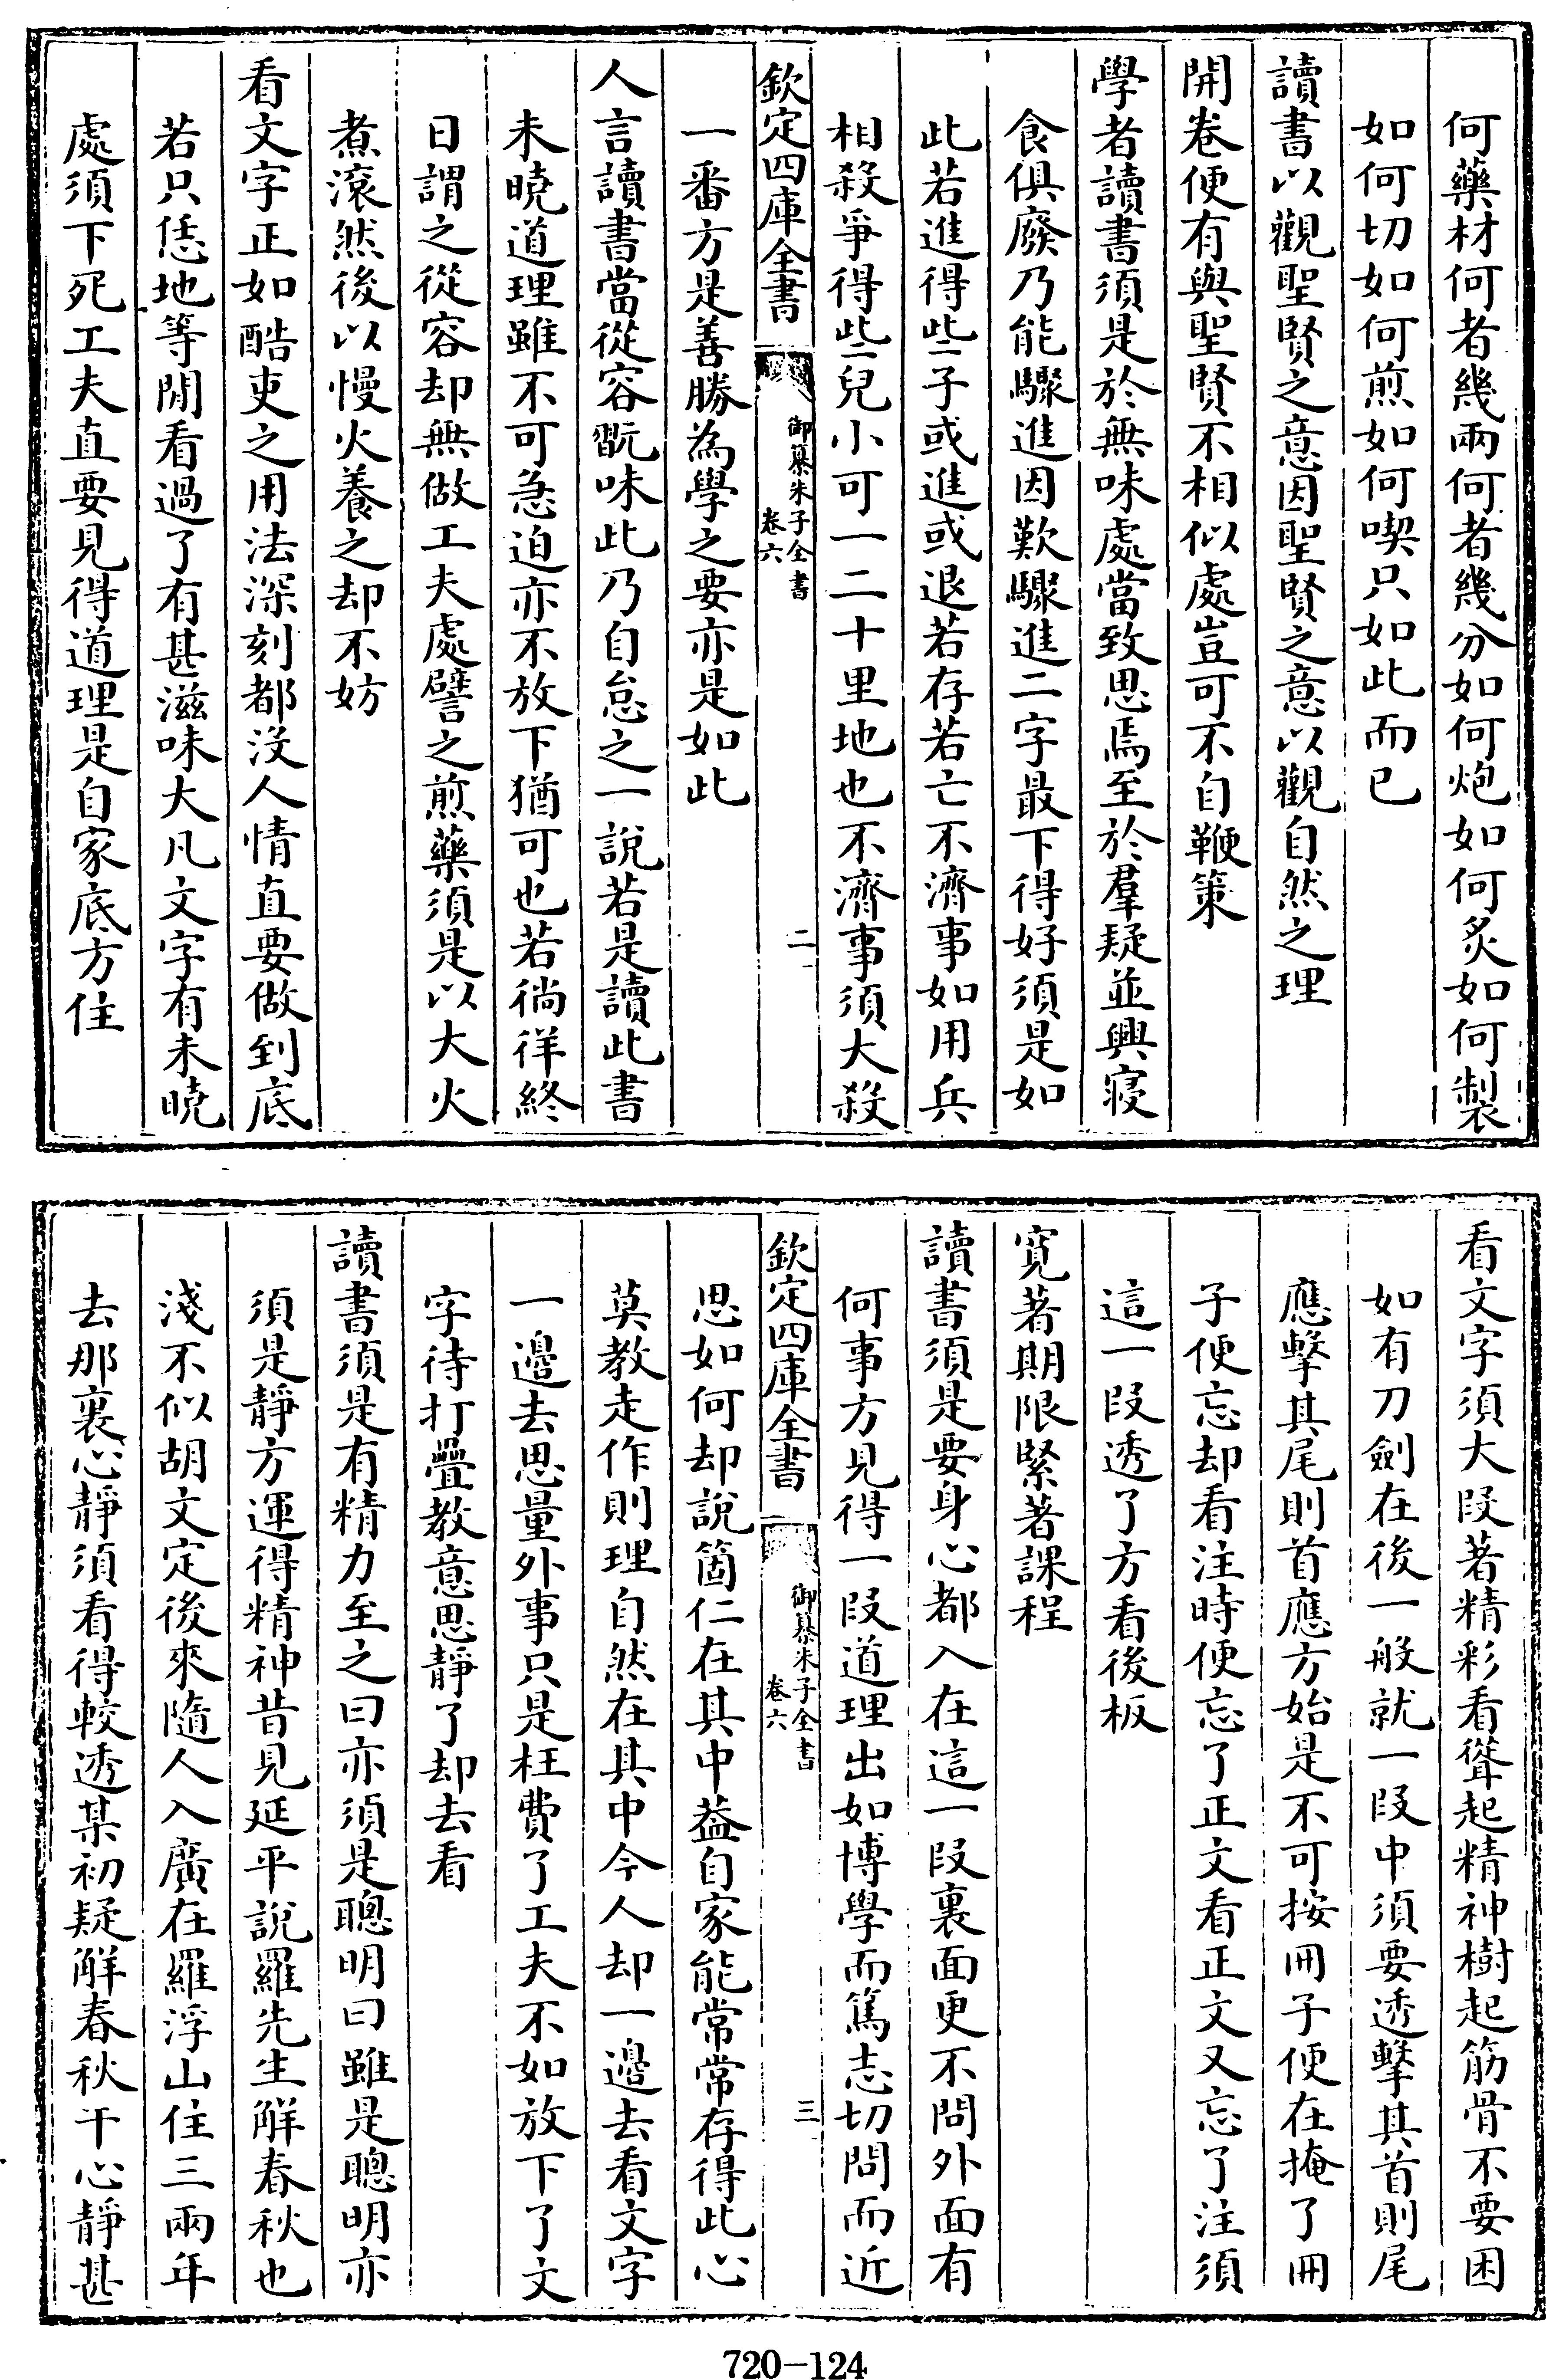 何藥材何者幾兩何者幾分如何炮如何炙如何製
如何切如何煎如何喫只如此而已
讀書以觀聖賢之意因聖賢之意以觀自然之理
開卷便有與聖賢不相似處豈可不自鞭策
學者讀書須是於無味處當致思焉至於羣疑並興寢
食俱廢乃能驟進因歎驟進二字最下得好須是如
此若進得些子或進或退若存若亡不濟事如用兵
相殺爭得些兒小可一二十里地也不濟事須大殺
欽定四庫全書
御纂朱子全書
卷六
二
一番方是善勝為學之要亦是如此
人言讀書當從容翫味此乃自怠之一說若是讀此書
未曉道理雖不可急迫亦不放下猶可也若徜徉終
日謂之從容却無做工夫處譬之煎藥須是以大火
煮滾然後以慢火養之却不妨
看文字正如酷吏之用法深刻都沒人情直要做到底
若只恁地等閒看過了有甚滋味大凡文字有未曉
處須下死工夫直要見得道理是自家底方住
看文字須大段著精彩看聳起精神樹起筋骨不要困
如有刀劍在後一般就一段中須要透擊其首則尾
應擊其尾則首應方始是不可按冊子便在掩了冊
子便忘却看注時便忘了正文看正文又忘了注須
這一段透了方看後板
寬著期限緊著課程
讀書須是要身心都入在這一段裏面更不問外面有
何事方見得一段道理出如博學而篤志切問而近
欽定四庫全書
御纂朱子全書
卷六
三
思如何却說箇仁在其中蓋自家能常常存得此心
莫教走作則理自然在其中今人却一邊去看文字
一邊去思量外事只是枉費了工夫不如放下了文
字待打疊教意思靜了却去看
讀書須是有精力至之曰亦須是聰明曰雖是聰明亦
須是靜方運得精神昔見延平說羅先生解春秋也
淺不似胡文定後來隨人入廣在羅浮山住三兩年
去那裏心靜須看得較透某初疑解春秋干心靜甚
720-124